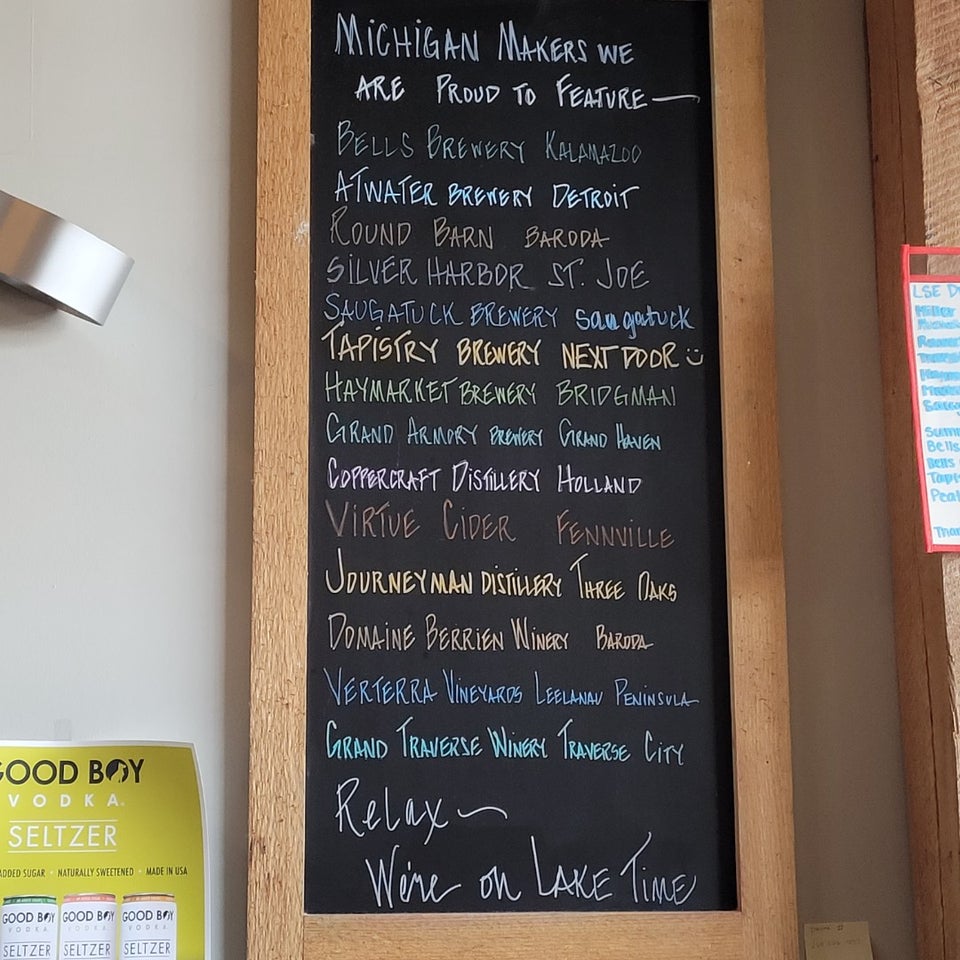 MICHIGAN MAKERS WE
ARE PROUD TO FEATURE—
BELLS BREWERY KALAMAZOO
ATWATER BREWERY DETROIT
ROUND BARN BARODA
SILVER HARBOR ST. JOE
SAUGATUCK BREWERY saugatuck
TAPISTRY BREWERY NEXT DOOR :)
HAYMARKET BREWERY BRIDGMAN
GRAND ARMORY BREWERY GRAND HAVEN
COPPERCRAFT DISTILLERY HOLLAND
VIRTUE CIDER FENNVILLE
JOURNEYMAN DISTILLERY THREE OAKS
DOMAINE BERRIEN WINERY BARODA
VERTERRA VINEYARDS LEELANAU PENINSULA
GRAND TRAVERSE WINERY TRAVERSE CITY
Relax~
We're on LAKE TIME
GOOD BOY
VODKA
SELTZER
ADDED SUGAR • NATURALLY SWEETENED • MADE IN USA
GOOD BOY GOOD BOY GOOD BOY
VODKA VODKA VODKA
SELTZER SELTZER SELTZER
LSE
Miller
Bells
Bells